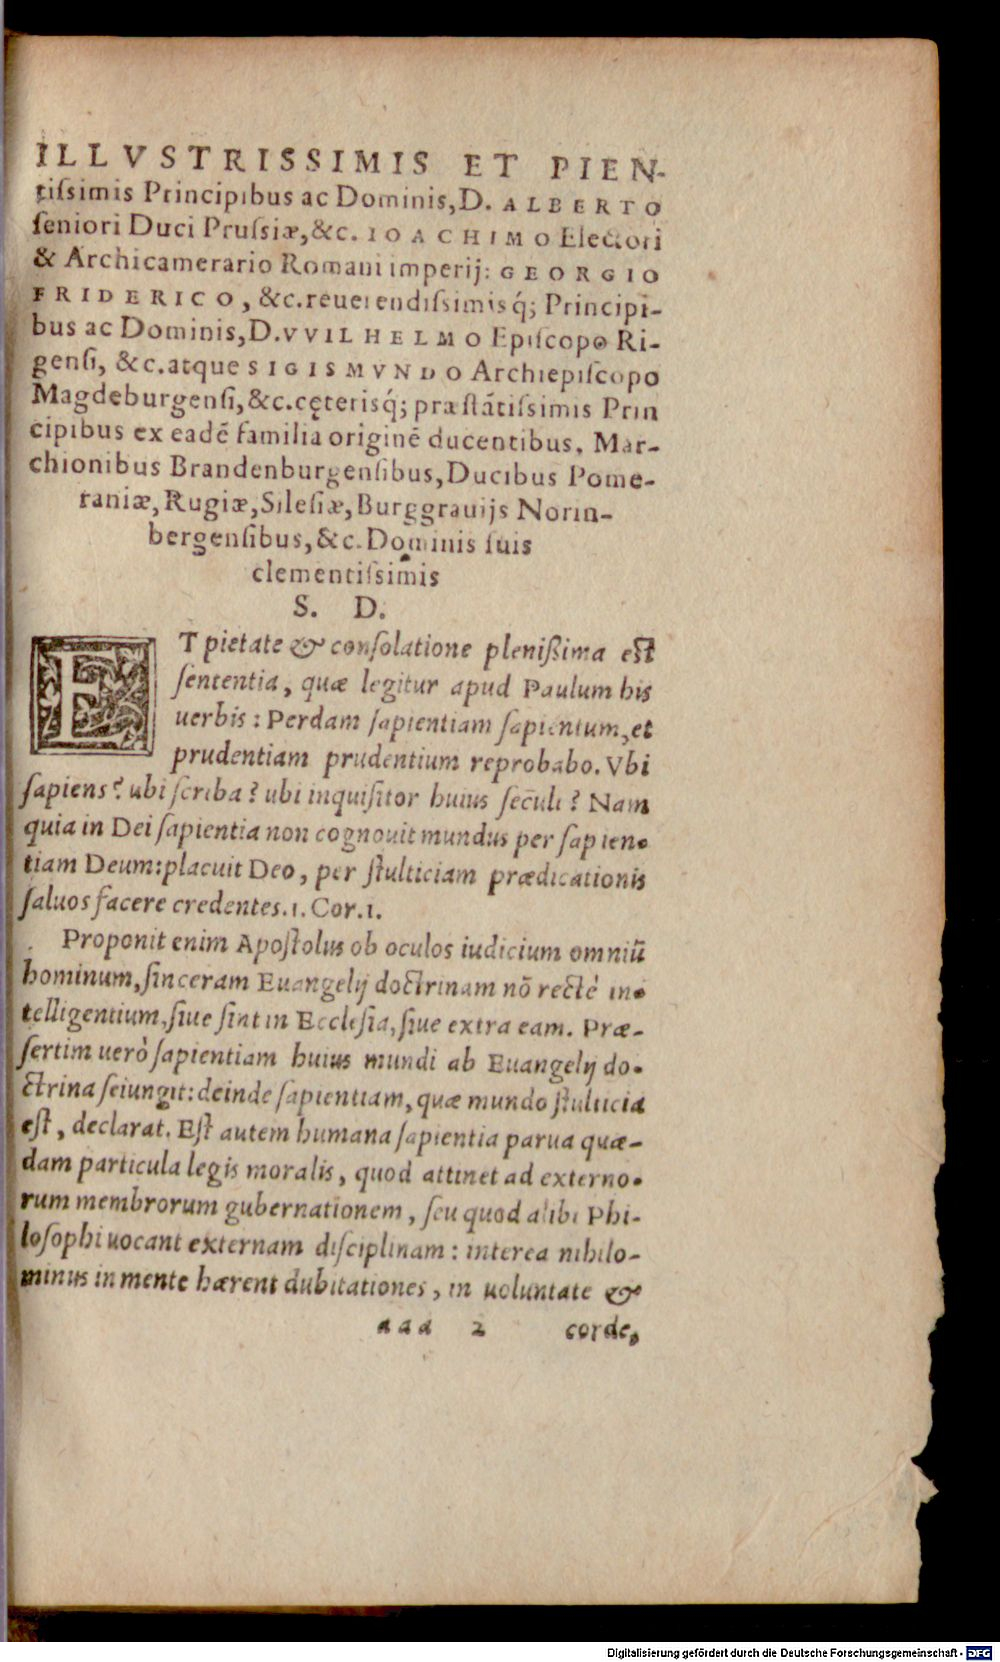 ILLVSTRISSIMIS ET PIEN-
tissimis Principibus ac Dominis, D. ALBERTO
seniori Duci Prussiæ, &c. IOACHIMO Electori
& Archicamerario Romani imperij: GEORGIO
FRIDERICO, &c. reuerendissimisq́; Principi-
bus ac Dominis, D. VVILHELMO Episcopo Ri-
gensi, &c. atque SIGISMVNDO Archiepiscopo
Magdeburgensi, &c. cęterisq́; præstātissimis Prin
cipibus ex eadē familia originē ducentibus, Mar-
chionibus Brandenburgensibus, Ducibus Pome-
raniæ, Rugiæ, Silesiæ, Burggrauijs Norin-
bergensibus, &c. Dominis suis
clementissimis
S. D.
ET pietate & consolatione plenißima est
sententia, quæ legitur apud Paulum his
uerbis: Perdam sapientiam sapientum, et
prudentiam prudentium reprobabo. Vbi
sapiens? ubi scriba? ubi inquisitor huius seculi? Nam
quia in Dei sapientia non cognouit mundus per sapien-
tiam Deum: placuit Deo, per stulticiam prædicationis
saluos facere credentes. 1. Cor. 1.
Proponit enim Apostolus ob oculos iudicium omniū
hominum, sinceram Euangelij doctrinam nō rectè in-
telligentium, siue sint in Ecclesia, siue extra eam. Præ-
sertim uerò sapientiam huius mundi ab Euangelij do-
ctrina seiungit: deinde sapientiam, quæ mundo stulticia
est, declarat. Est autem humana sapientia parua quæ-
dam particula legis moralis, quod attinet ad externo-
rum membrorum gubernationem, seu quod alibi Phi-
losophi uocant externam disciplinam: interea nihilo-
minus in mente hærent dubitationes, in uoluntate &
aaa 2 corde,
Digitalisierung gefördert durch die Deutsche Forschungsgemeinschaft - DFG